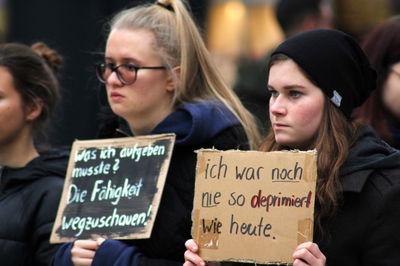 Was ich aufgeben
musste?
Die Fähigkeit
wegzuschauen!
ich war noch
nie so deprimiert
wie heute.